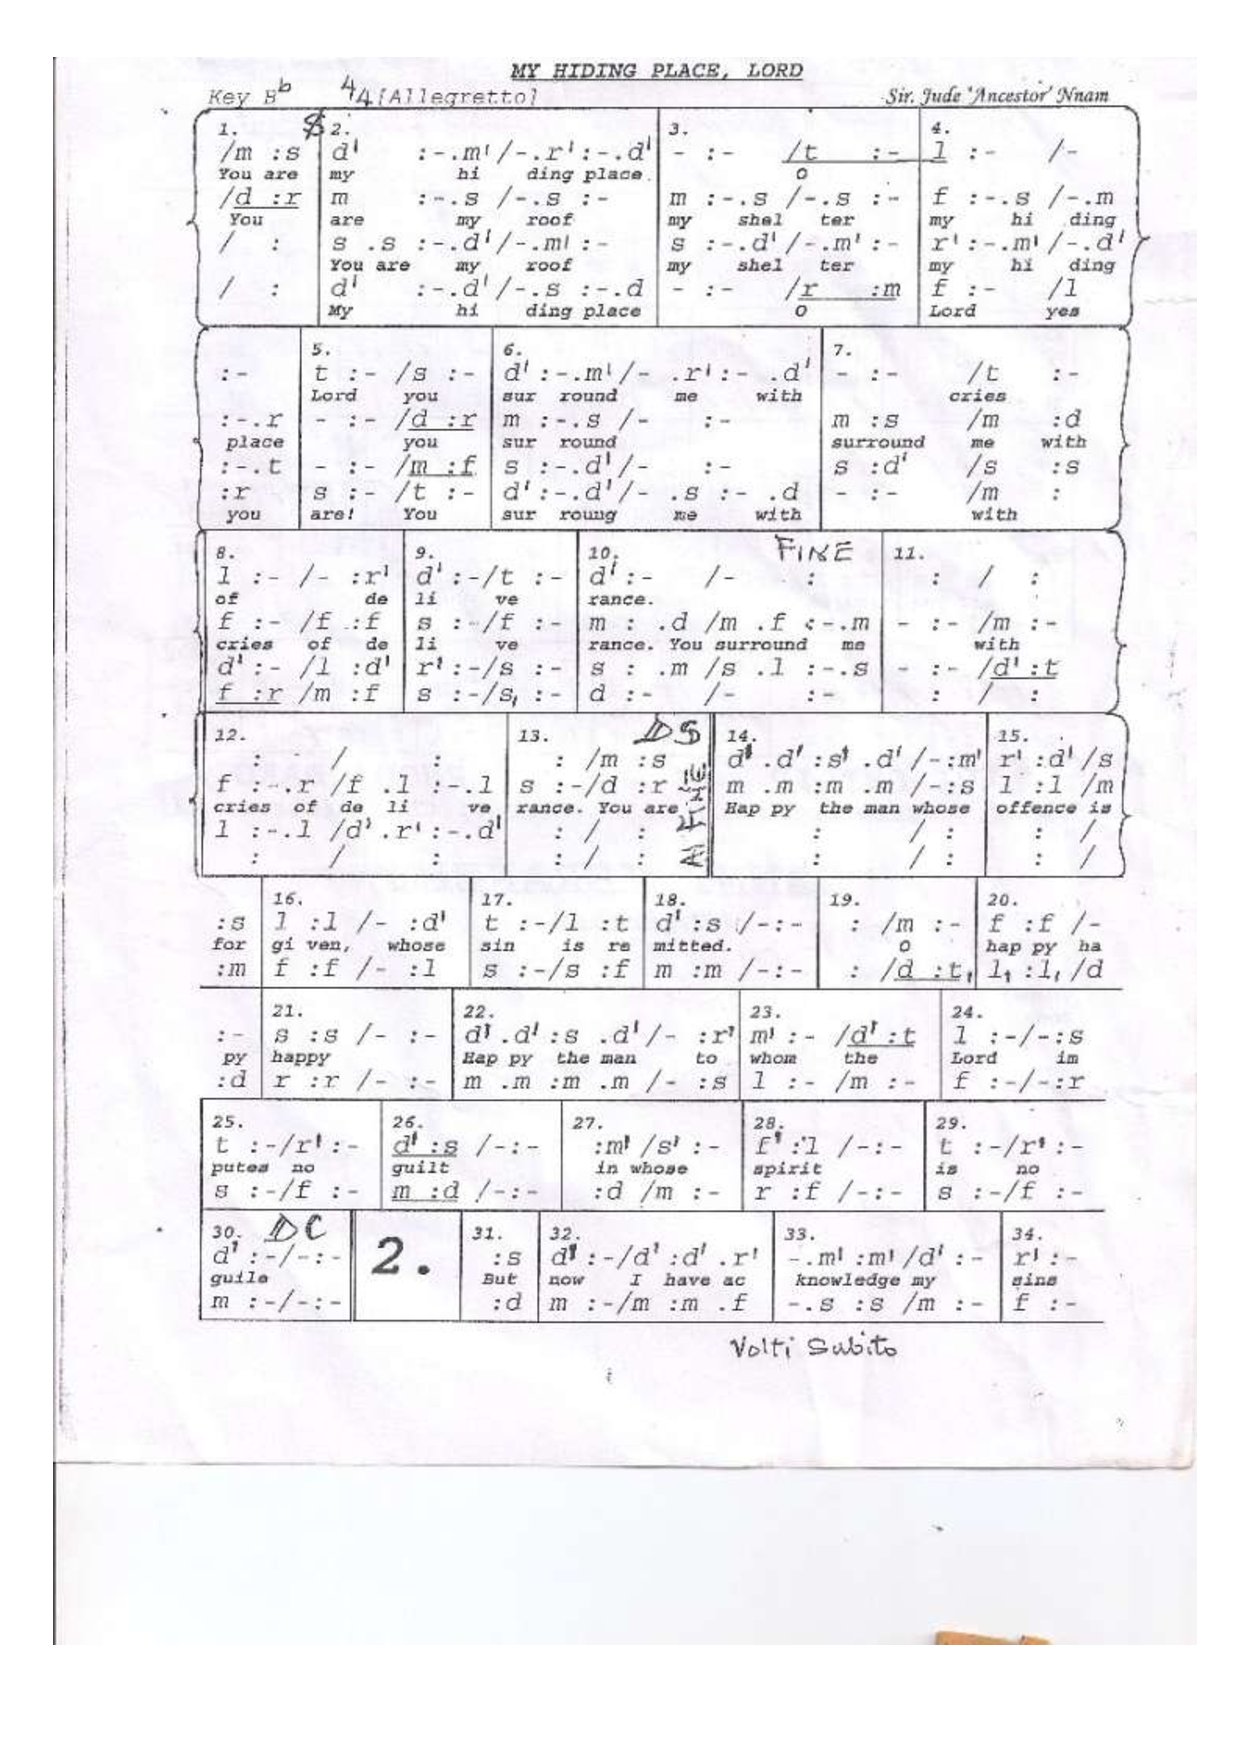 MY HIDING PLACE, LORD
Key Bb 4/4 [Allegretto] Sir. Jude 'Ancestor' Nnam
1. 2. 3. 4.
/m :s d' :-.m' /-.r' :-.d' - :- /t :- l :- /-
You are my hi ding place. O
/d :r m :-.s /-.s :- m :-.s /-.s :- f :-.s /-.m
You are my roof my shel ter my hi ding
/ : s .s :-.d' /-.m' :- s :-.d' /-.m' :- r' :-.m' /-.d'
You are my roof my shel ter my hi ding
/ : d' :-.d' /-.s :-.d - :- /r :m f :- /l
My hi ding place O Lord yes
5. 6. 7.
:- t :- /s :- d' :-.m' /- .r' :- .d' - :- /t :-
Lord you sur round me with cries
:-.r - :- /d :r m :-.s /- :- m :s /m :d
place you sur round surround me with
:-.t - :- /m :f s :-.d' /- :- s :d' /s :s
:r s :- /t :- d' :-.d' /- .s :- .d - :- /m :
you are! You sur roung me with with
8. 9. 10. FINE 11.
l :- /- :r' d' :-/t :- d' :- /- : : / :
of de li ve rance.
f :- /f :f s :-/f :- m : .d /m .f :-.m - :- /m :-
cries of de li ve rance. You surround me with
d' :- /l :d' r' :-/s :- s : .m /s .l :-.s - :- /d' :t
f :r /m :f s :-/s, :- d :- /- :- : / :
12. 13. DS 14. 15.
: / : : /m :s d' .d' :s' .d' /-:m' r' :d' /s
f :-.r /f .l :-.l s :-/d :r m .m :m .m /-:s l :l /m
cries of de li ve rance. You are Hap py the man whose offence is
l :-.l /d' .r' :-.d' : / : : / : : /
: / : : / : : / : : /
Al FINE
16. 17. 18. 19. 20.
:s l :l /- :d' t :-/l :t d' :s /-:- : /m :- f :f /-
for gi ven, whose sin is re mitted. O hap py ha
:m f :f /- :l s :-/s :f m :m /-:- : /d :t, l, :l, /d
21. 22. 23. 24.
:- s :s /- :- d' .d' :s .d' /- :r' m' :- /d' :t l :-/-:s
py happy Hap py the man to whom the Lord im
:d r :r /- :- m .m :m .m /- :s l :- /m :- f :-/-:r
25. 26. 27. 28. 29.
t :-/r' :- d' :s /-:- :m' /s' :- f' :l /-:- t :-/r' :-
putes no guilt in whose spirit is no
s :-/f :- m :d /-:- :d /m :- r :f /-:- s :-/f :-
30. DC 2. 31. 32. 33. 34.
d' :-/-:- :s d' :-/d' :d' .r' -.m' :m' /d' :- r' :-
guile But now I have ac knowledge my sins
m :-/-:- :d m :-/m :m .f -.s :s /m :- f :-
Volti Subito